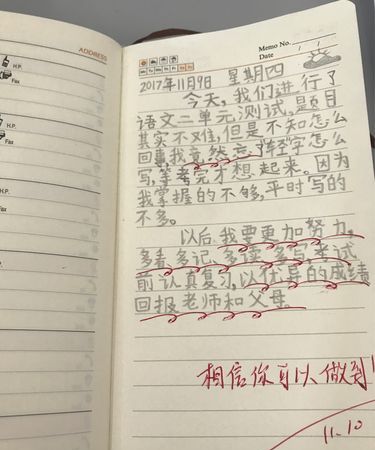 ADDRESS
H.P.
Fax
H.P.
Fax
H.P.
Fax
Memo No.
Mo Tu We Th Fr Sa Su
Date
2017年11月9日 星期四
今天,我们进行了
语文二单元测试,题目
其实不难,但是不知怎么
回事,我竟然忘了轻字怎么
写,等考完才想起来。因为
我掌握的不够,平时写的
不多。
以后我要更加努力,
多看、多记、多读、多写,考试
前认真复习,以优异的成绩
回报老师和父母。
相信你可以做到!
11.10